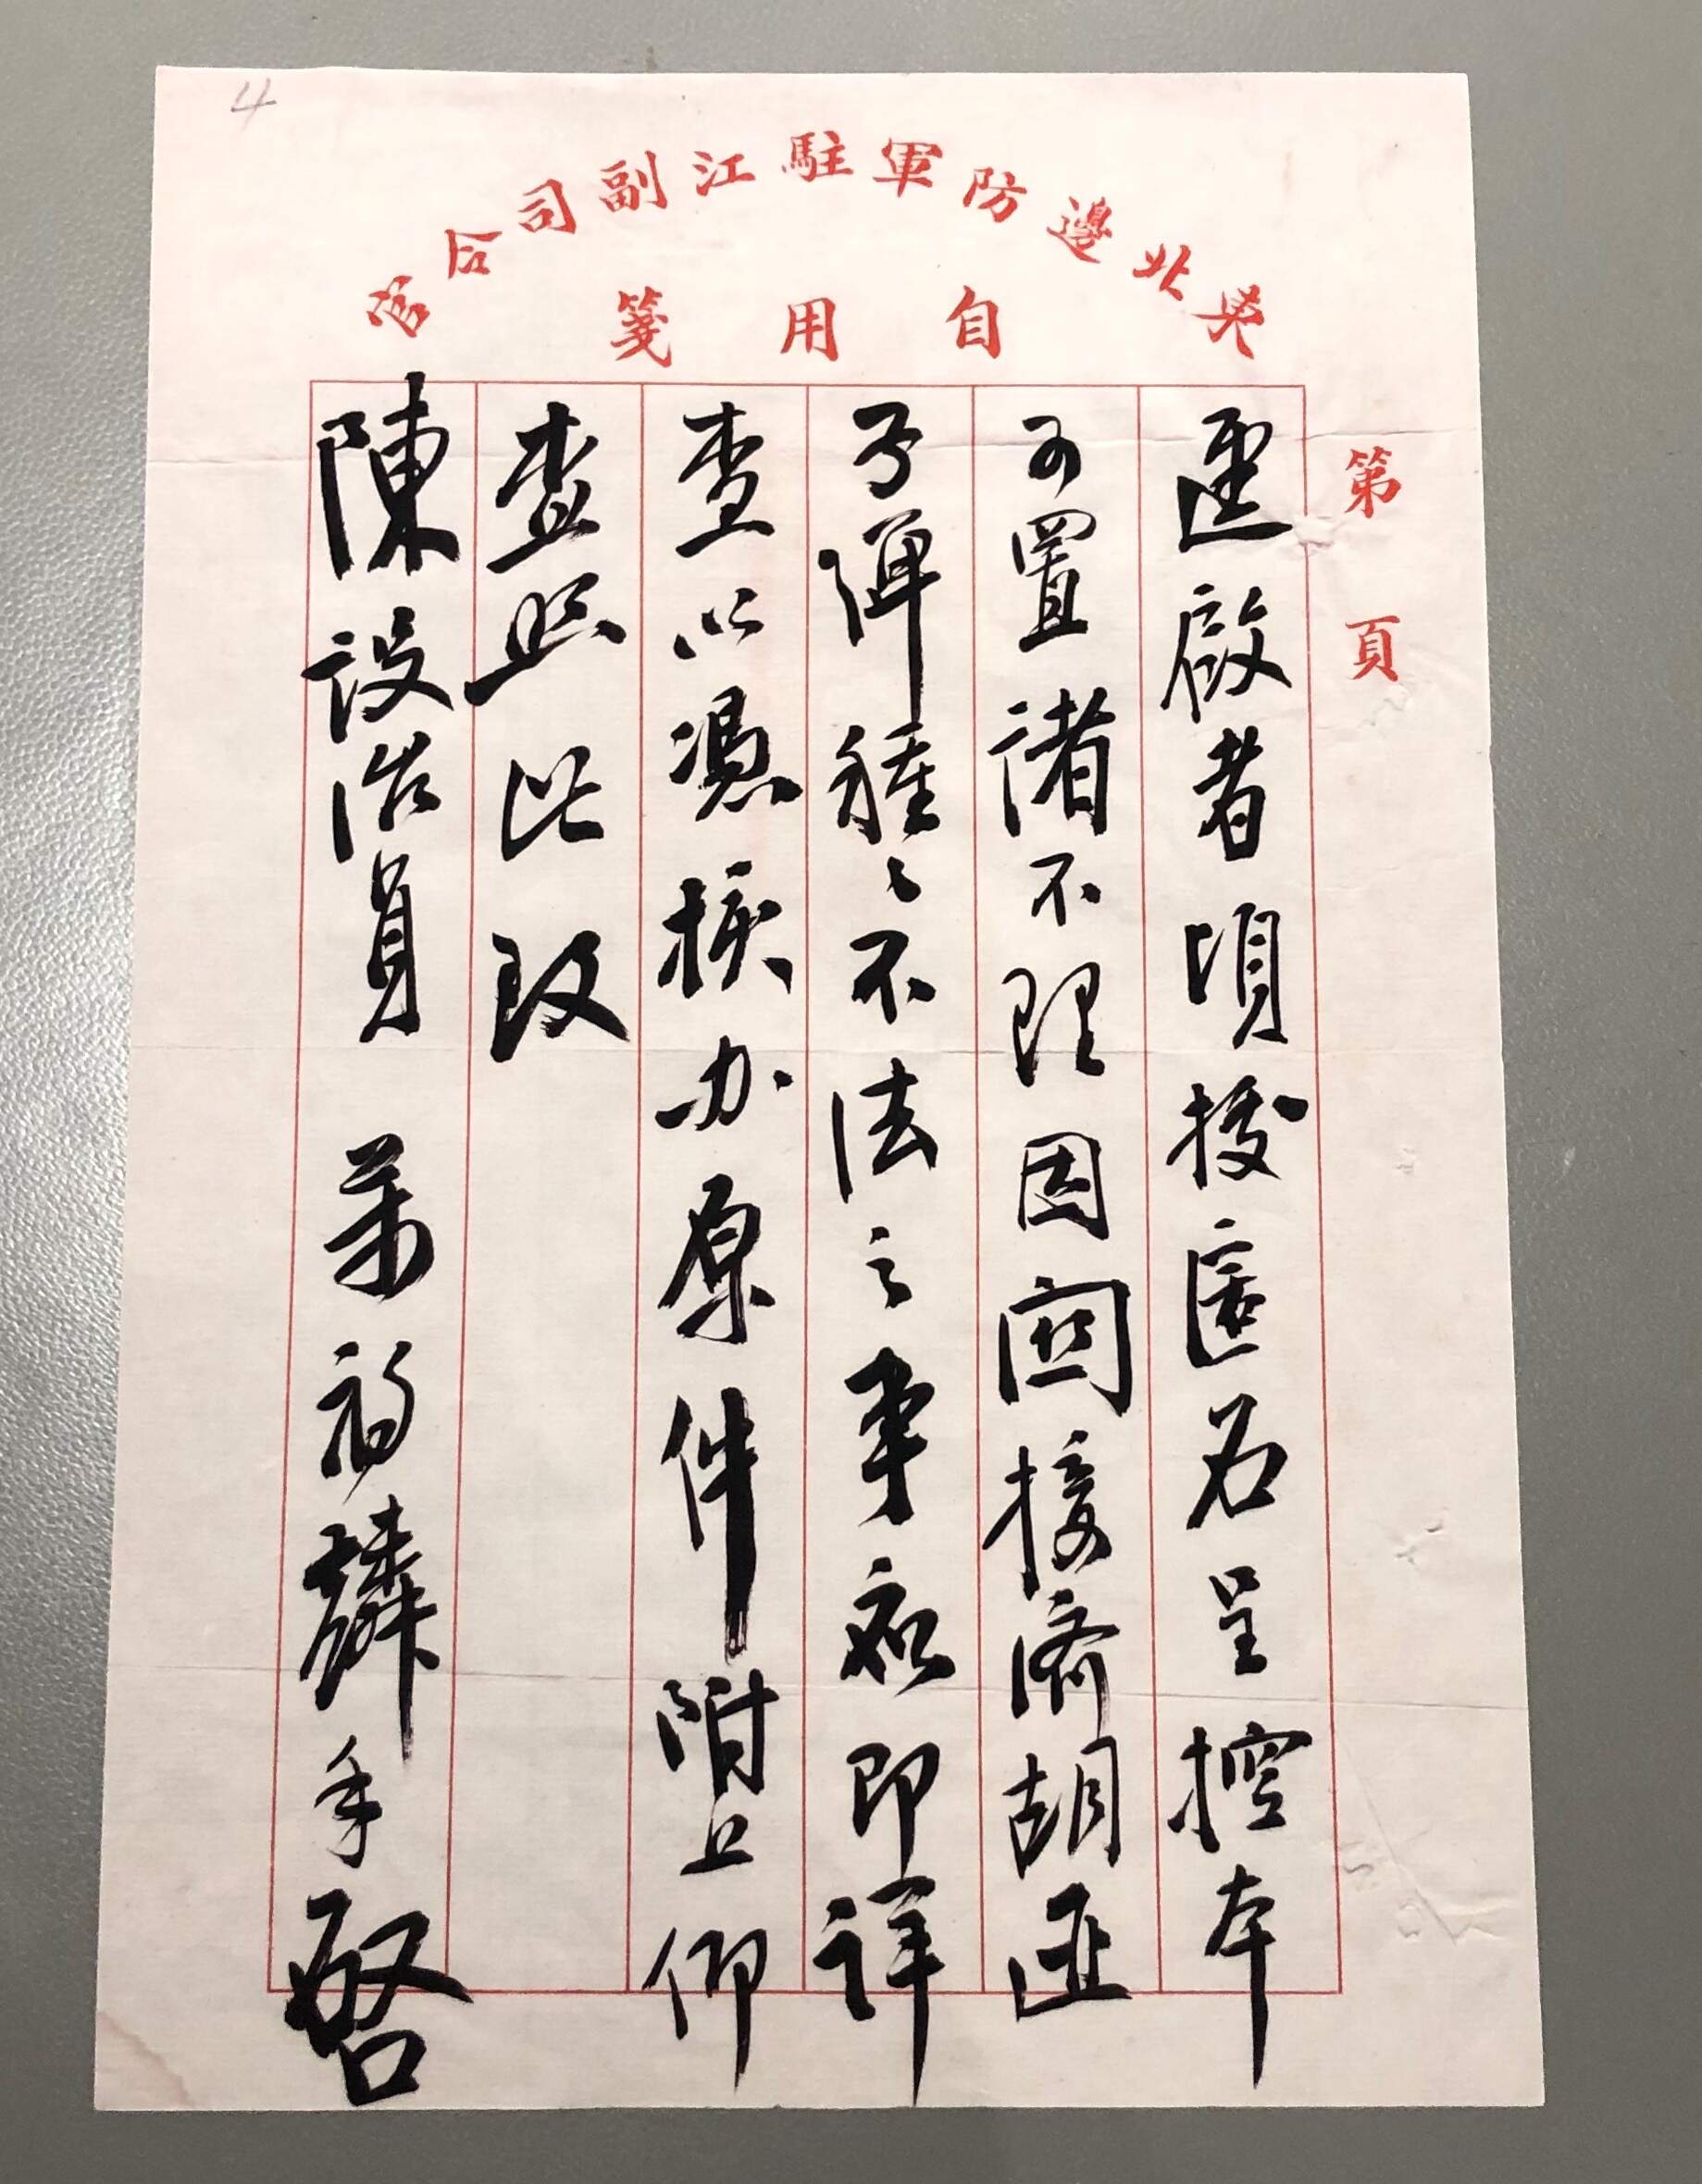 4
東北邊防軍駐江副司令官
自用箋
第 頁
逕啟者頃接匿名呈控本
可置諸不理因關接濟胡匪
子彈種〻不法之事 即詳
查以憑核办原件附上仰
查照此致
陳設治員 萬福麟手啓